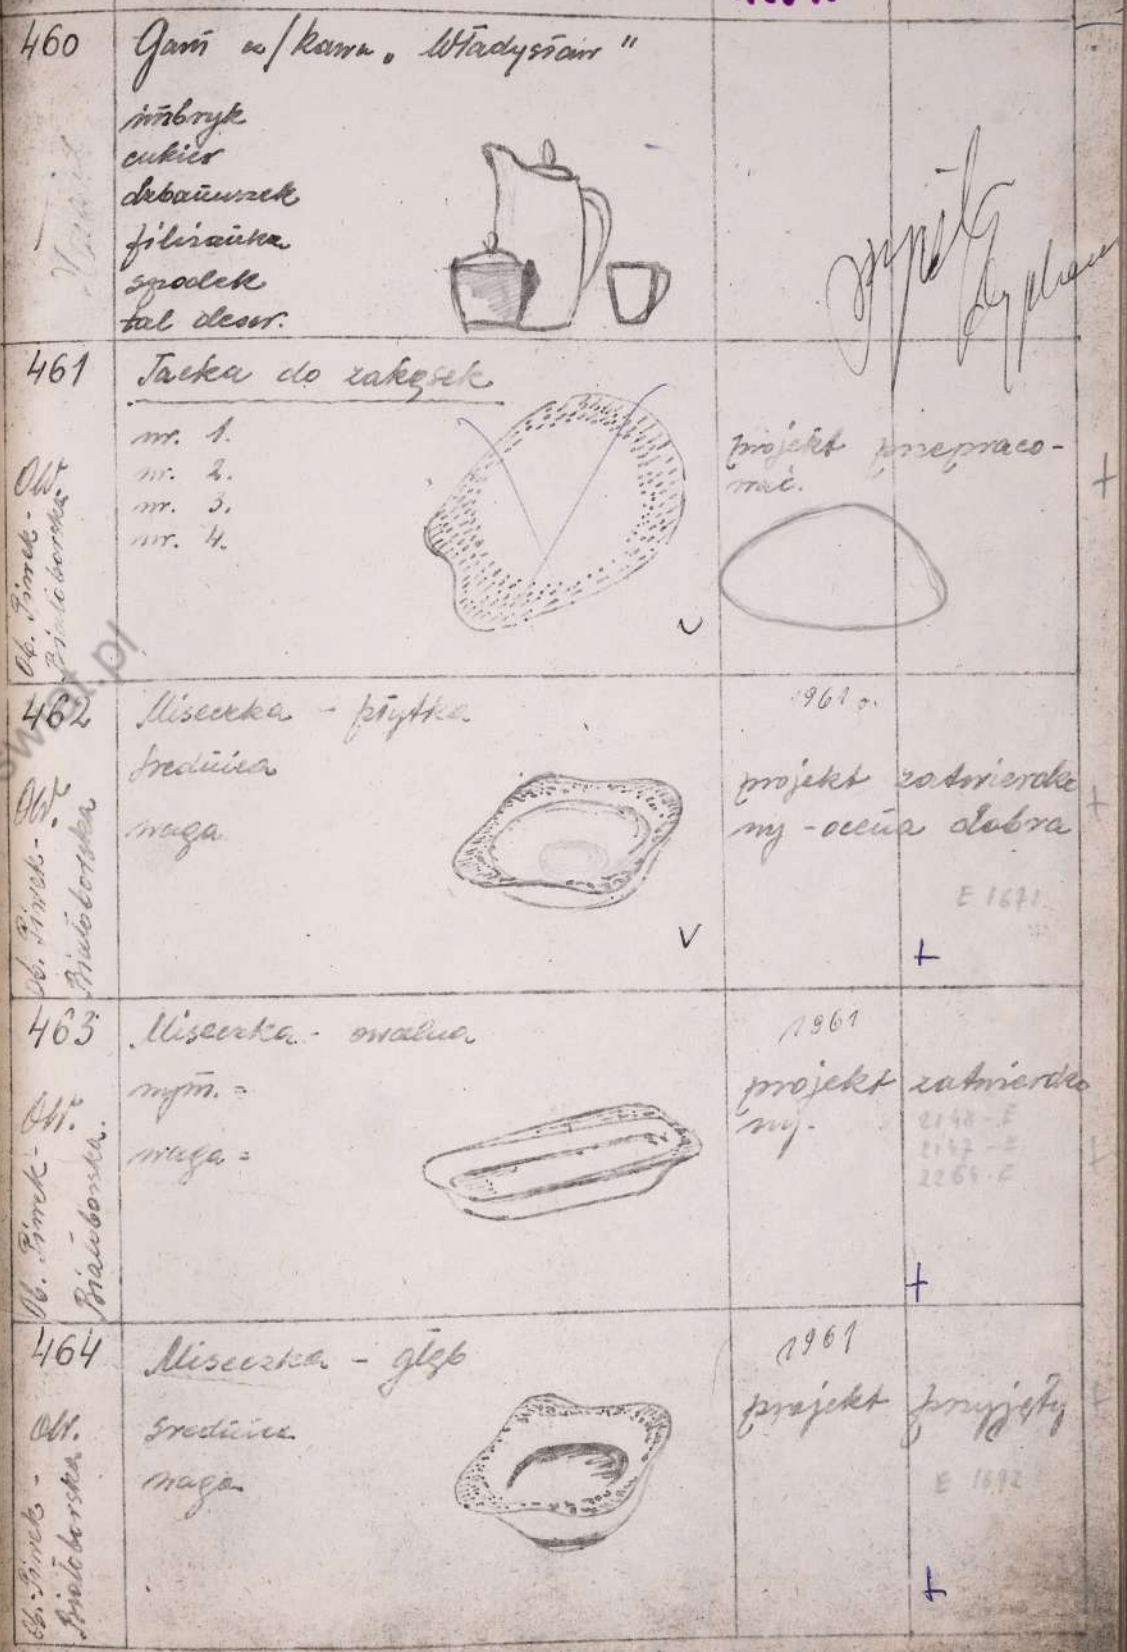 460
Garn. do/kawy „Władysław"
imbryk
cukier
dzbanuszek
filiżanka
spodek
tal deser.
461
Tacka do zakąsek
nr. 1.
nr. 2.
nr. 3.
nr. 4.
projekt przepraco-
wać.
Ob. Piwek-
Białoborska
462
Miseczka - płytka
średnica
waga
1961 r.
projekt zatwierdzo
ny - ocena dobra
E 1671
Ob. Piwek-
Białoborska
463
Miseczka - owalna
wym. =
waga =
1961
projekt zatwierdzo
ny.
2148 - E
2147 - E
2264 - E
Ob. Piwek-
Białoborska.
464
Miseczka - głęb
średnica
waga
1961
projekt przyjęty
E 1692
Ob. Piwek -
Białoborska